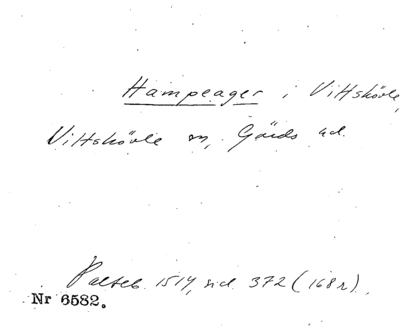 Hampeager i Vittskövle,
Vittskövle sn, Gärds hd.
Palteb. 1514, sid. 372 (168r).
Nr 6582.